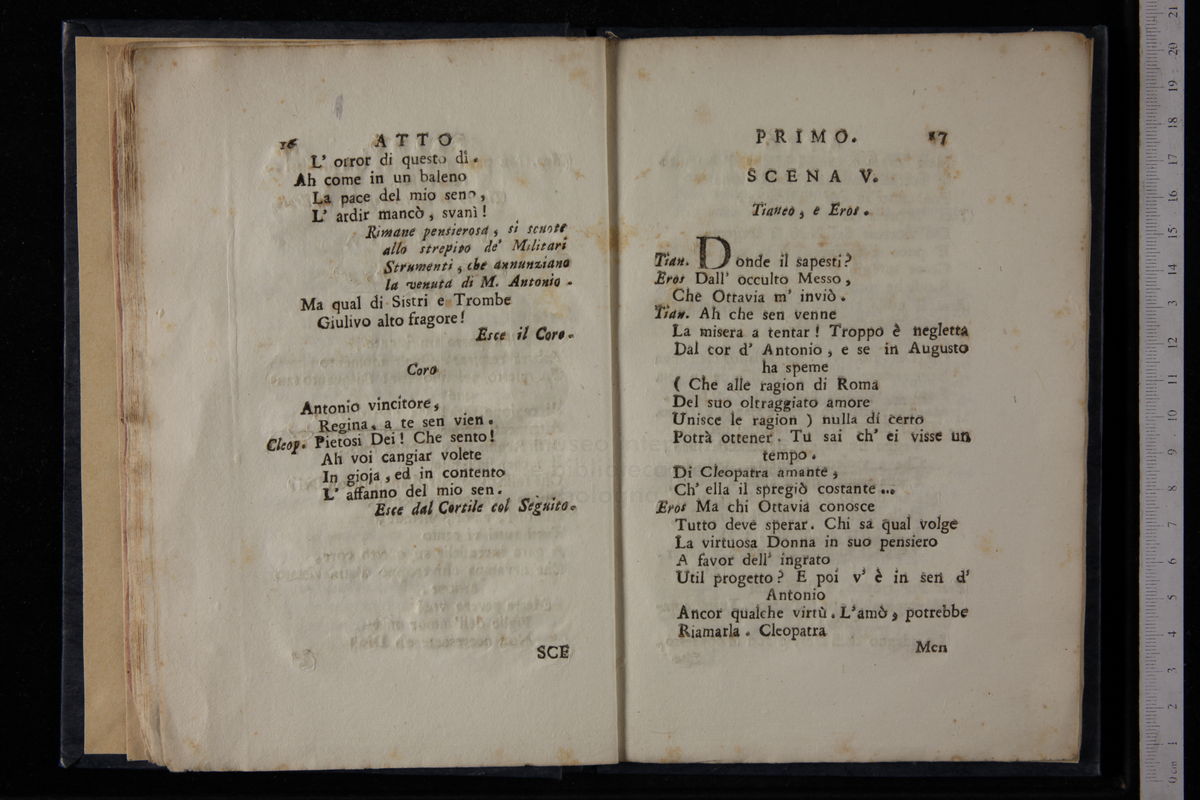 16 ATTO
L' orror di questo dì.
Ah come in un baleno
La pace del mio seno,
L' ardir mancò, svanì!
Rimane pensierosa, si scuote
allo strepito de' Militari
Strumenti, che annunziano
la venuta di M. Antonio.
Ma qual di Sistri e Trombe
Giulivo alto fragore!
Esce il Coro.
Coro
Antonio vincitore,
Regina, a te sen vien.
Cleop. Pietosi Dei! Che sento!
Ah voi cangiar volete
In gioja, ed in contento
L' affanno del mio sen.
Esce dal Cortile col Seguito.
SCE
PRIMO. 17
SCENA V.
Tianeo, e Eros.
Tian. Donde il sapesti?
Eros Dall' occulto Messo,
Che Ottavia m' inviò.
Tian. Ah che sen venne
La misera a tentar! Troppo è negletta
Dal cor d' Antonio, e se in Augusto
ha speme
( Che alle ragion di Roma
Del suo oltraggiato amore
Unisce le ragion ) nulla di certo
Potrà ottener. Tu sai ch' ei visse un
tempo.
Di Cleopatra amante,
Ch' ella il spregiò costante...
Eros Ma chi Ottavia conosce
Tutto deve sperar. Chi sa qual volge
La virtuosa Donna in suo pensiero
A favor dell' ingrato
Util progetto? E poi v' è in sen d'
Antonio
Ancor qualche virtù. L'amò, potrebbe
Riamarla. Cleopatra
Men
museo internazionale
e biblioteca
bologna
0 cm 1 2 3 4 5 6 7 8 9 10 11 12 13 14 15 16 17 18 19 20 21